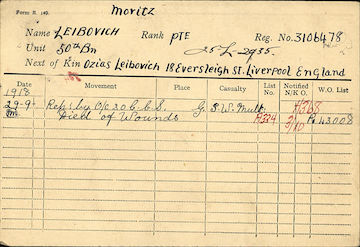 Form R. 149.
Moritz
Name LEIBOVICH Rank PTE Reg. No. 3106478
Unit 50th Bn 25-L-2935.
Next of Kin Ozias Leibovich 18 Eversleigh St. Liverpool England
Date Movement Place Casualty List No. Notified N/K O. W.O. List
1918
29-9- Rep. by O/C 30 C.C.S. G.S.W. Mult A368
Died of Wounds A334 3/10 43008